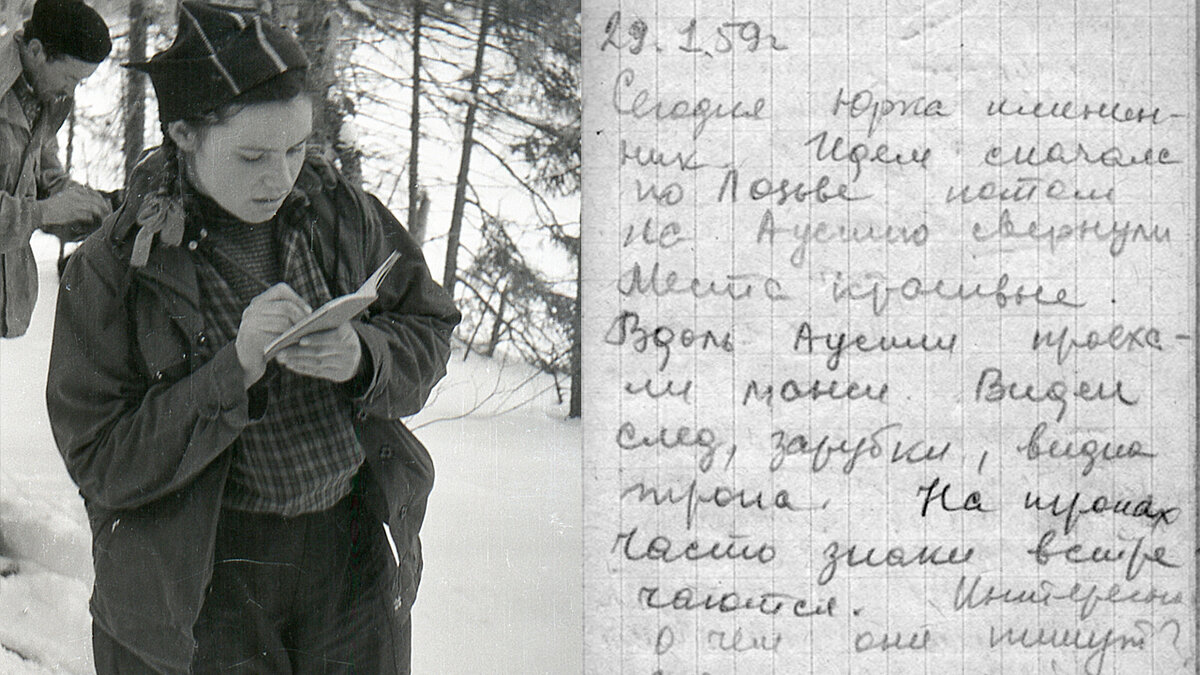 29.1.59г
Сегодня Юрка именин-
ник. Идем сначала
по Лозьве потом
на Ауспию свернули
Места красивые.
Вдоль Ауспии проеха-
ли манси. Виден
след, зарубки, видна
тропа. На тропах
часто знаки встре
чаются. Интересно
о чем они пишут?